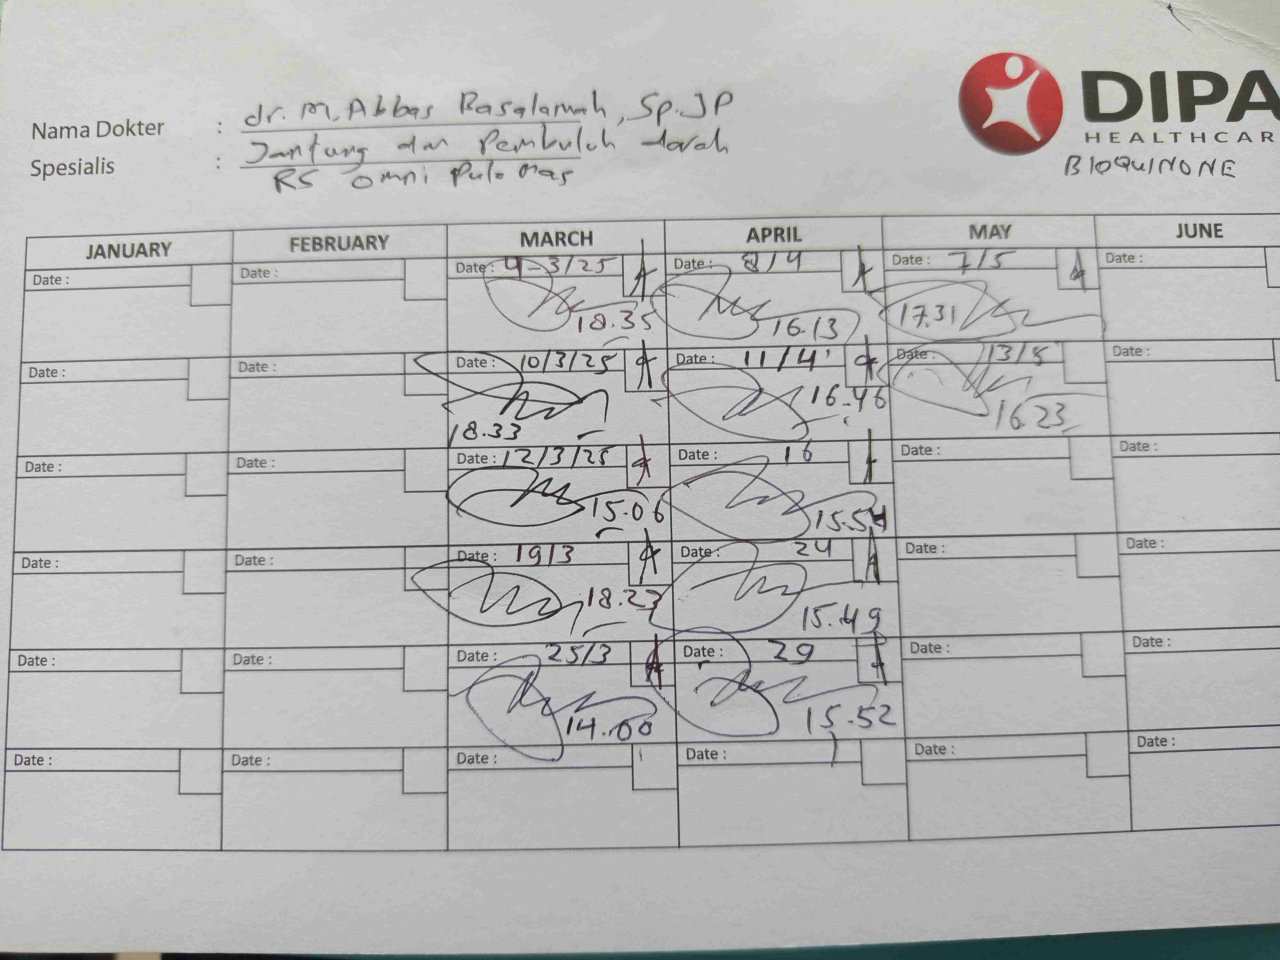 DIPA
HEALTHCAR
BIOQUINONE
Nama Dokter : dr. M. Abbas Basalamah, Sp.JP
Spesialis : Jantung dan Pembuluh darah
RS Omni Pulo Mas
JANUARY FEBRUARY MARCH APRIL MAY JUNE
Date : Date : Date : 4-3/25 Date : 8/4 Date : 7/5 Date :
18.35 16.13 17.31
Date : Date : Date : 10/3/25 Date : 11/4 Date : 13/5 Date :
18.33 16.46 16.23
Date : Date : Date : 12/3/25 Date : 16 Date : Date :
15.06 15.54
Date : Date : Date : 19/3 Date : 24 Date : Date :
18.23 15.49
Date : Date : Date : 25/3 Date : 29 Date : Date :
14.00 15.52
Date : Date : Date : Date : Date : Date :